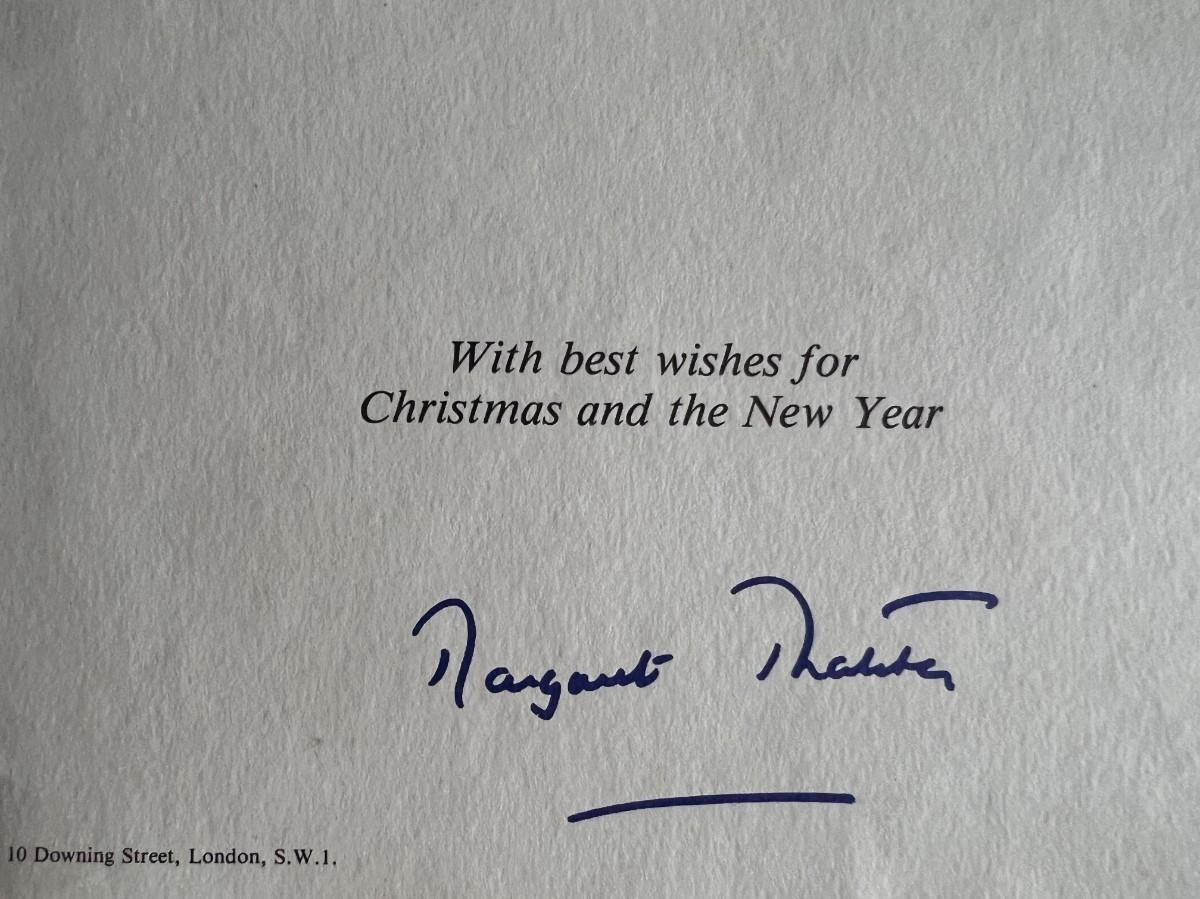 With best wishes for
Christmas and the New Year
Margaret Thatcher
10 Downing Street, London, S.W.1.